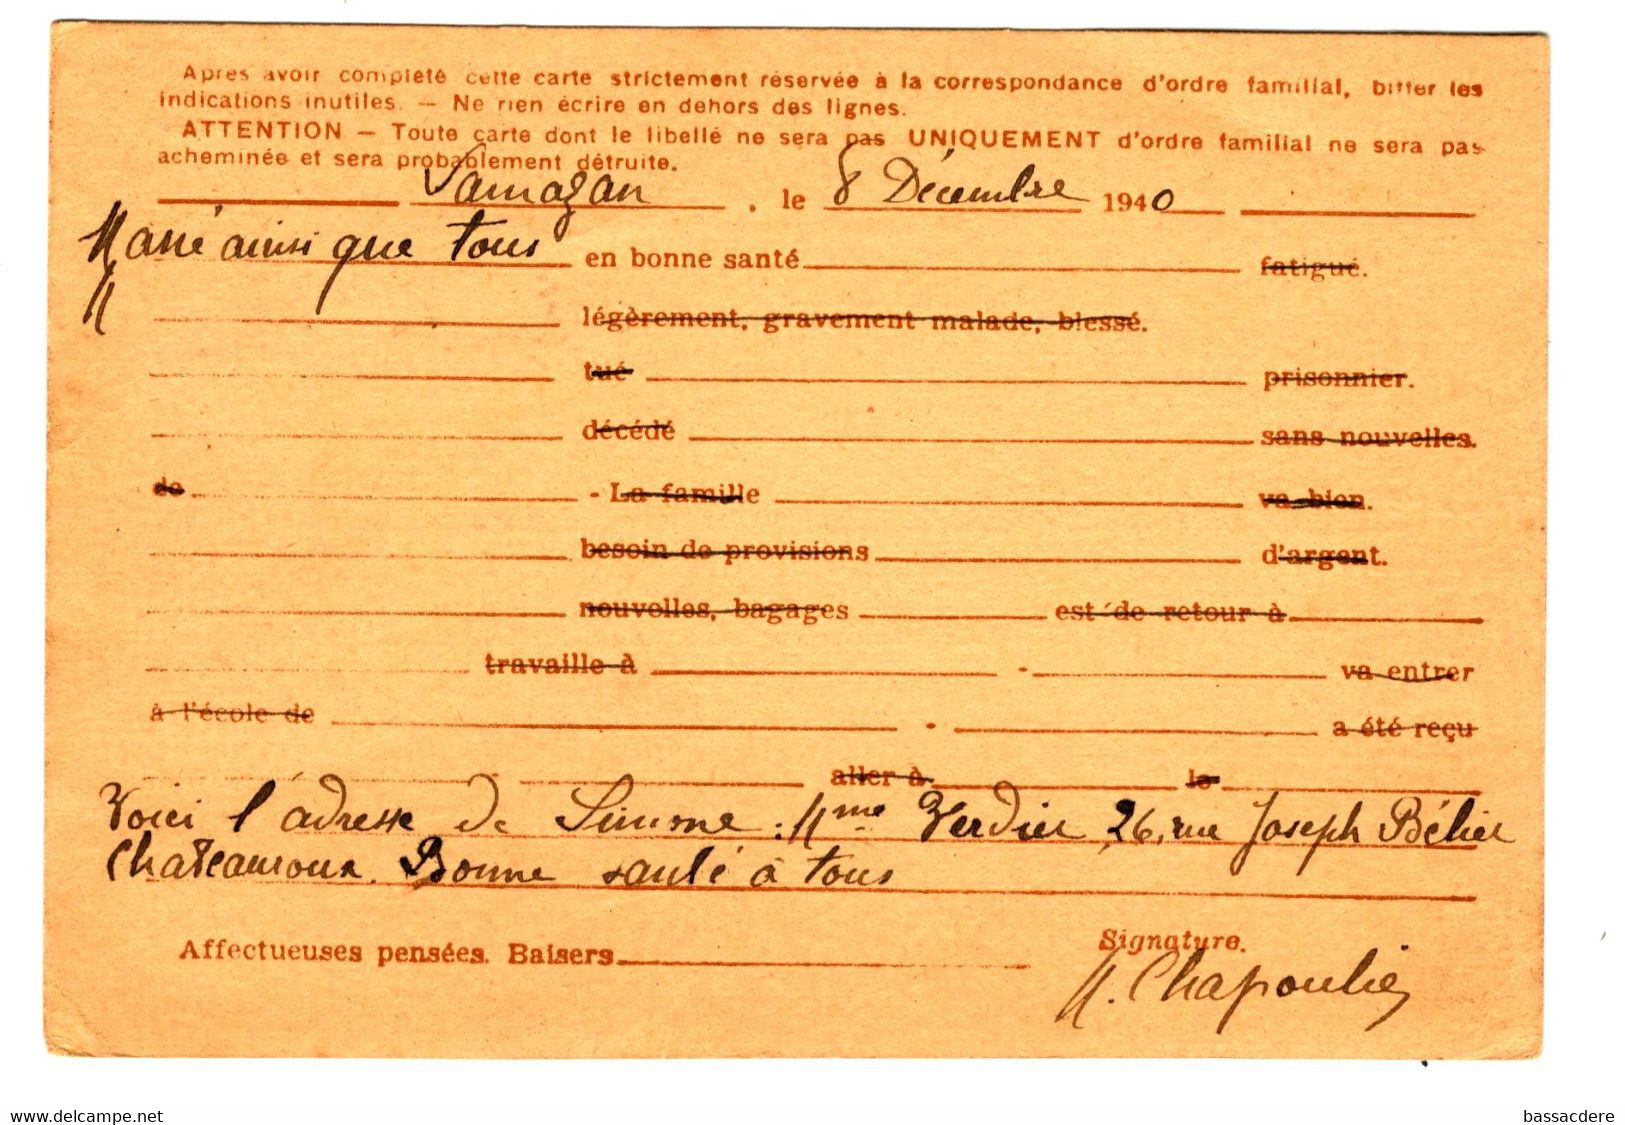 Après avoir complété cette carte strictement réservée à la correspondance d'ordre familial, biffer les
indications inutiles. — Ne rien écrire en dehors des lignes.
ATTENTION — Toute carte dont le libellé ne sera pas UNIQUEMENT d'ordre familial ne sera pas
acheminée et sera probablement détruite.
Samazan, le 8 Décembre 1940
ainsi que tous en bonne santé fatigué.
légèrement, gravement malade, blessé.
tué prisonnier.
décédé sans nouvelles.
de - La famille va bien.
besoin de provisions d'argent.
nouvelles, bagages est de retour à
travaille à - va entrer
à l'école de - a été reçu
aller à le
Voici l'adresse de Simone : Mme Verdier, 26, rue Joseph Bélier
Chateauroux. Bonne santé à tous
Affectueuses pensées. Baisers
Signature.
M. Chapoulie
delcampe.net
bassacdere